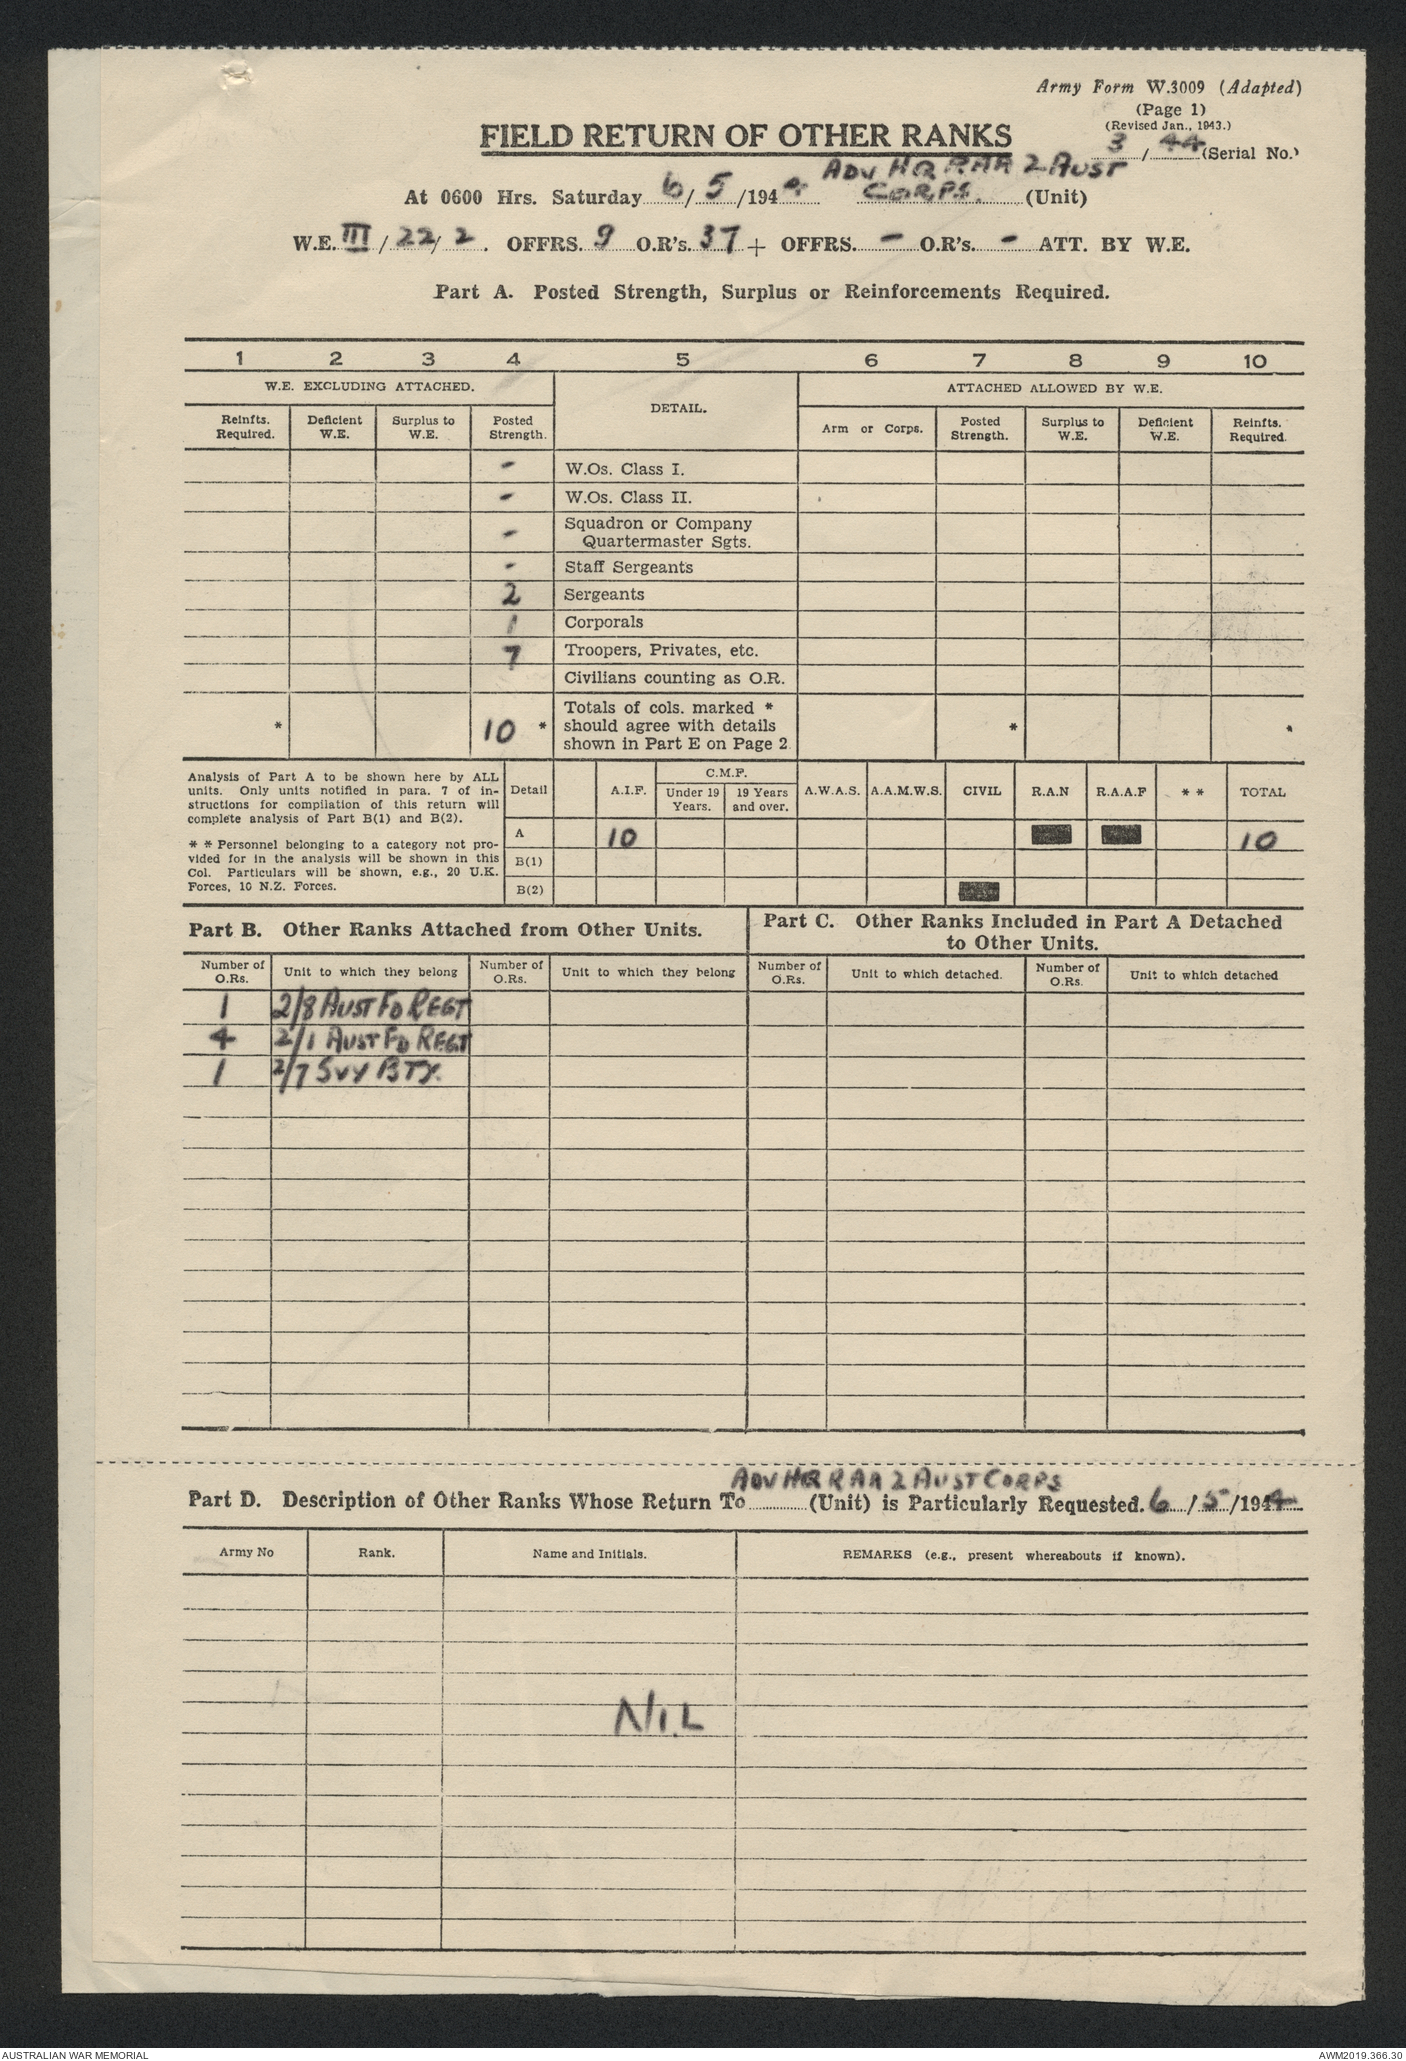 Army Form W.3009 (Adapted)
(Page 1)
(Revised Jan., 1943.)
FIELD RETURN OF OTHER RANKS
3 / 44 (Serial No.)
ADV HQ RAA 2 AUST
At 0600 Hrs. Saturday 6/5/1944 CORPS. (Unit)
W.E. III/22/2. OFFRS. 9 O.R's. 37 + OFFRS. - O.R's. - ATT. BY W.E.
Part A. Posted Strength, Surplus or Reinforcements Required.
1 2 3 4 5 6 7 8 9 10
W.E. EXCLUDING ATTACHED. DETAIL. ATTACHED ALLOWED BY W.E.
Reinfts. Required. Deficient W.E. Surplus to W.E. Posted Strength. Arm or Corps. Posted Strength. Surplus to W.E. Deficient W.E. Reinfts. Required.
- W.Os. Class I.
- W.Os. Class II.
- Squadron or Company
Quartermaster Sgts.
- Staff Sergeants
2 Sergeants
1 Corporals
7 Troopers, Privates, etc.
Civilians counting as O.R.
Totals of cols. marked *
* 10 * should agree with details * *
shown in Part E on Page 2
Analysis of Part A to be shown here by ALL
units. Only units notified in para. 7 of in-
structions for compilation of this return will
complete analysis of Part B(1) and B(2).
* * Personnel belonging to a category not pro-
vided for in the analysis will be shown in this
Col. Particulars will be shown, e.g., 20 U.K.
Forces, 10 N.Z. Forces.
Detail A.I.F. C.M.F. Under 19 Years. 19 Years and over. A.W.A.S. A.A.M.W.S. CIVIL R.A.N R.A.A.F * * TOTAL
A 10 10
B(1)
B(2)
Part B. Other Ranks Attached from Other Units.
Part C. Other Ranks Included in Part A Detached
to Other Units.
Number of O.Rs. Unit to which they belong Number of O.Rs. Unit to which they belong Number of O.Rs. Unit to which detached. Number of O.Rs. Unit to which detached
1 2/8 AUST FD REGT
4 2/1 AUST FD REGT
1 2/7 SVY BTY.
ADV HQ RAA 2 AUST CORPS
Part D. Description of Other Ranks Whose Return To (Unit) is Particularly Requested. 6/5/1944
Army No Rank. Name and Initials. REMARKS (e.g., present whereabouts if known).
NIL
AUSTRALIAN WAR MEMORIAL AWM2019.366.30